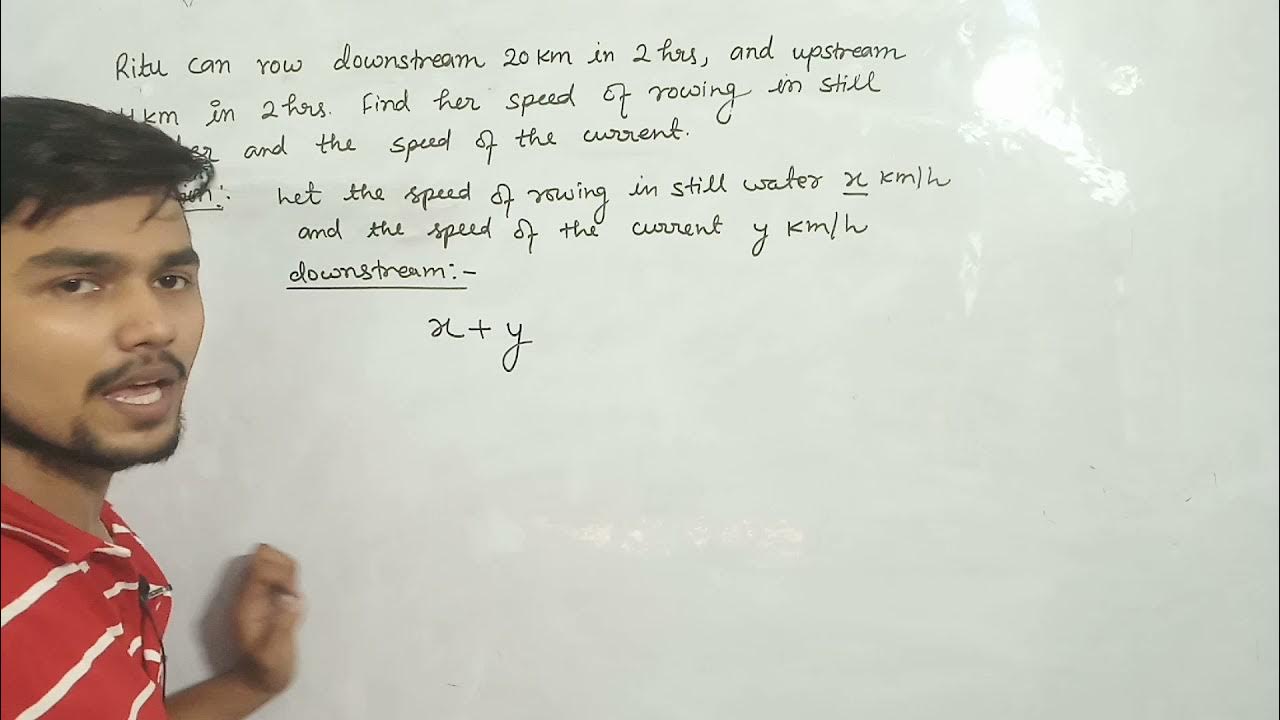 Ritu can row downstream 20 km in 2 hrs, and upstream
km in 2 hrs. Find her speed of rowing in still
and the speed of the current.
Let the speed of rowing in still water x km/h
and the speed of the current y km/h
downstream:-
x + y